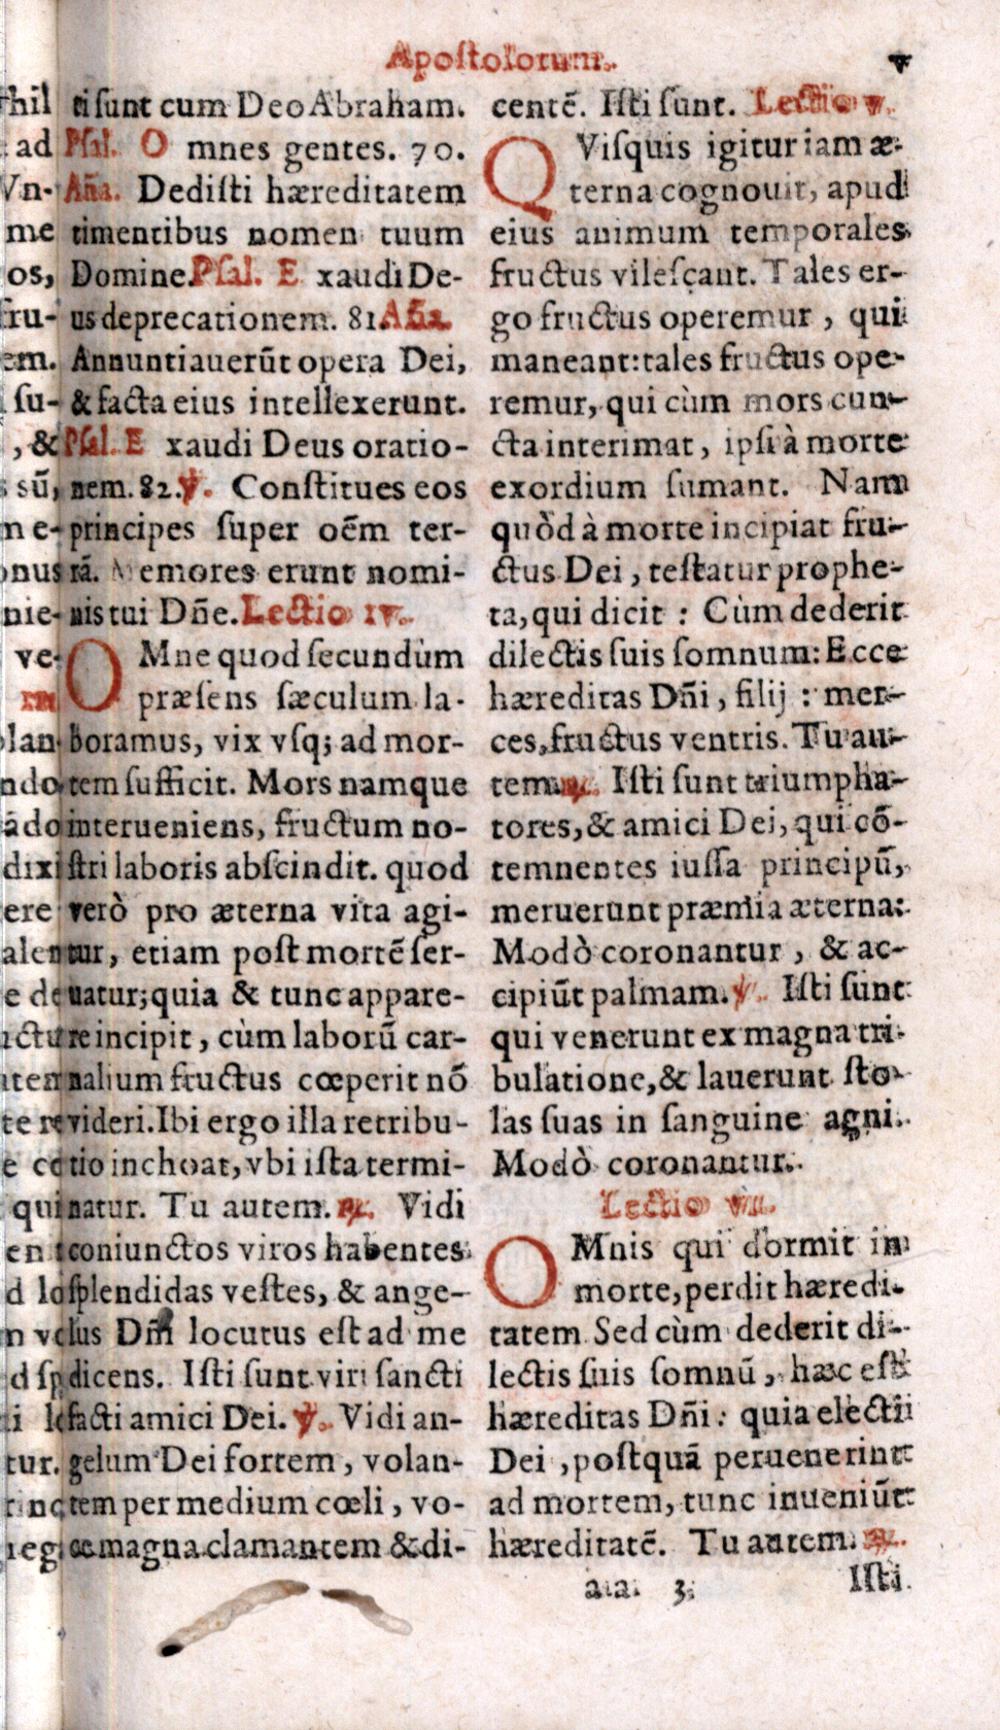 Apostolorum.
v
ti sunt cum Deo Abraham.
Psal. O mnes gentes. 70.
Aña. Dedisti hæreditatem
timentibus nomen tuum
Domine. Psal. E xaudi De-
us deprecationem. 81. Aña.
Annuntiauerũt opera Dei,
& facta eius intellexerunt.
Psal. E xaudi Deus oratio-
nem. 82. ℣. Constitues eos
principes super oẽm ter-
rã. Memores erunt nomi-
nis tui Dñe. Lectio iv.
OMne quod secundùm
præsens sæculum la-
boramus, vix vsq; ad mor-
tem sufficit. Mors namque
interueniens, fructum no-
stri laboris abscindit. quod
verò pro æterna vita agi-
tur, etiam post mortẽ ser-
uatur; quia & tunc appare-
re incipit, cùm laborũ car-
nalium fructus cœperit nõ
videri. Ibi ergo illa retribu-
tio inchoat, vbi ista termi-
natur. Tu autem. ℟. Vidi
coniunctos viros habentes
splendidas vestes, & ange-
lus Dñi locutus est ad me
dicens. Isti sunt viri sancti
facti amici Dei. ℣. Vidi an-
gelum Dei fortem, volan-
tem per medium cœli, vo-
ce magna clamantem & di-
centẽ. Isti sunt. Lectio v.
QVisquis igitur iam æ-
terna cognouit, apud
eius animum temporales
fructus vilescant. Tales er-
go fructus operemur, qui
maneant: tales fructus ope-
remur, qui cùm mors cun-
cta interimat, ipsi à morte
exordium sumant. Nam
quòd à morte incipiat fru-
ctus Dei, testatur prophe-
ta, qui dicit: Cùm dederit
dilectis suis somnum: Ecce
hæreditas Dñi, filij: mer-
ces, fructus ventris. Tu au-
tem. ℟. Isti sunt triumpha-
tores, & amici Dei, qui cõ-
temnentes iussa principũ,
meruerunt præmia æterna:
Modò coronantur, & ac-
cipiũt palmam. ℣. Isti sunt
qui venerunt ex magna tri-
bulatione, & lauerunt sto-
las suas in sanguine agni.
Modò coronantur.
Lectio vi.
OMnis qui dormit in
morte, perdit hæredi-
tatem. Sed cùm dederit di-
lectis suis somnũ, hæc est
hæreditas Dñi: quia electi
Dei, postquã peruenerint
ad mortem, tunc inueniũt
hæreditatẽ. Tu autem. ℟.
aa 3
Isti